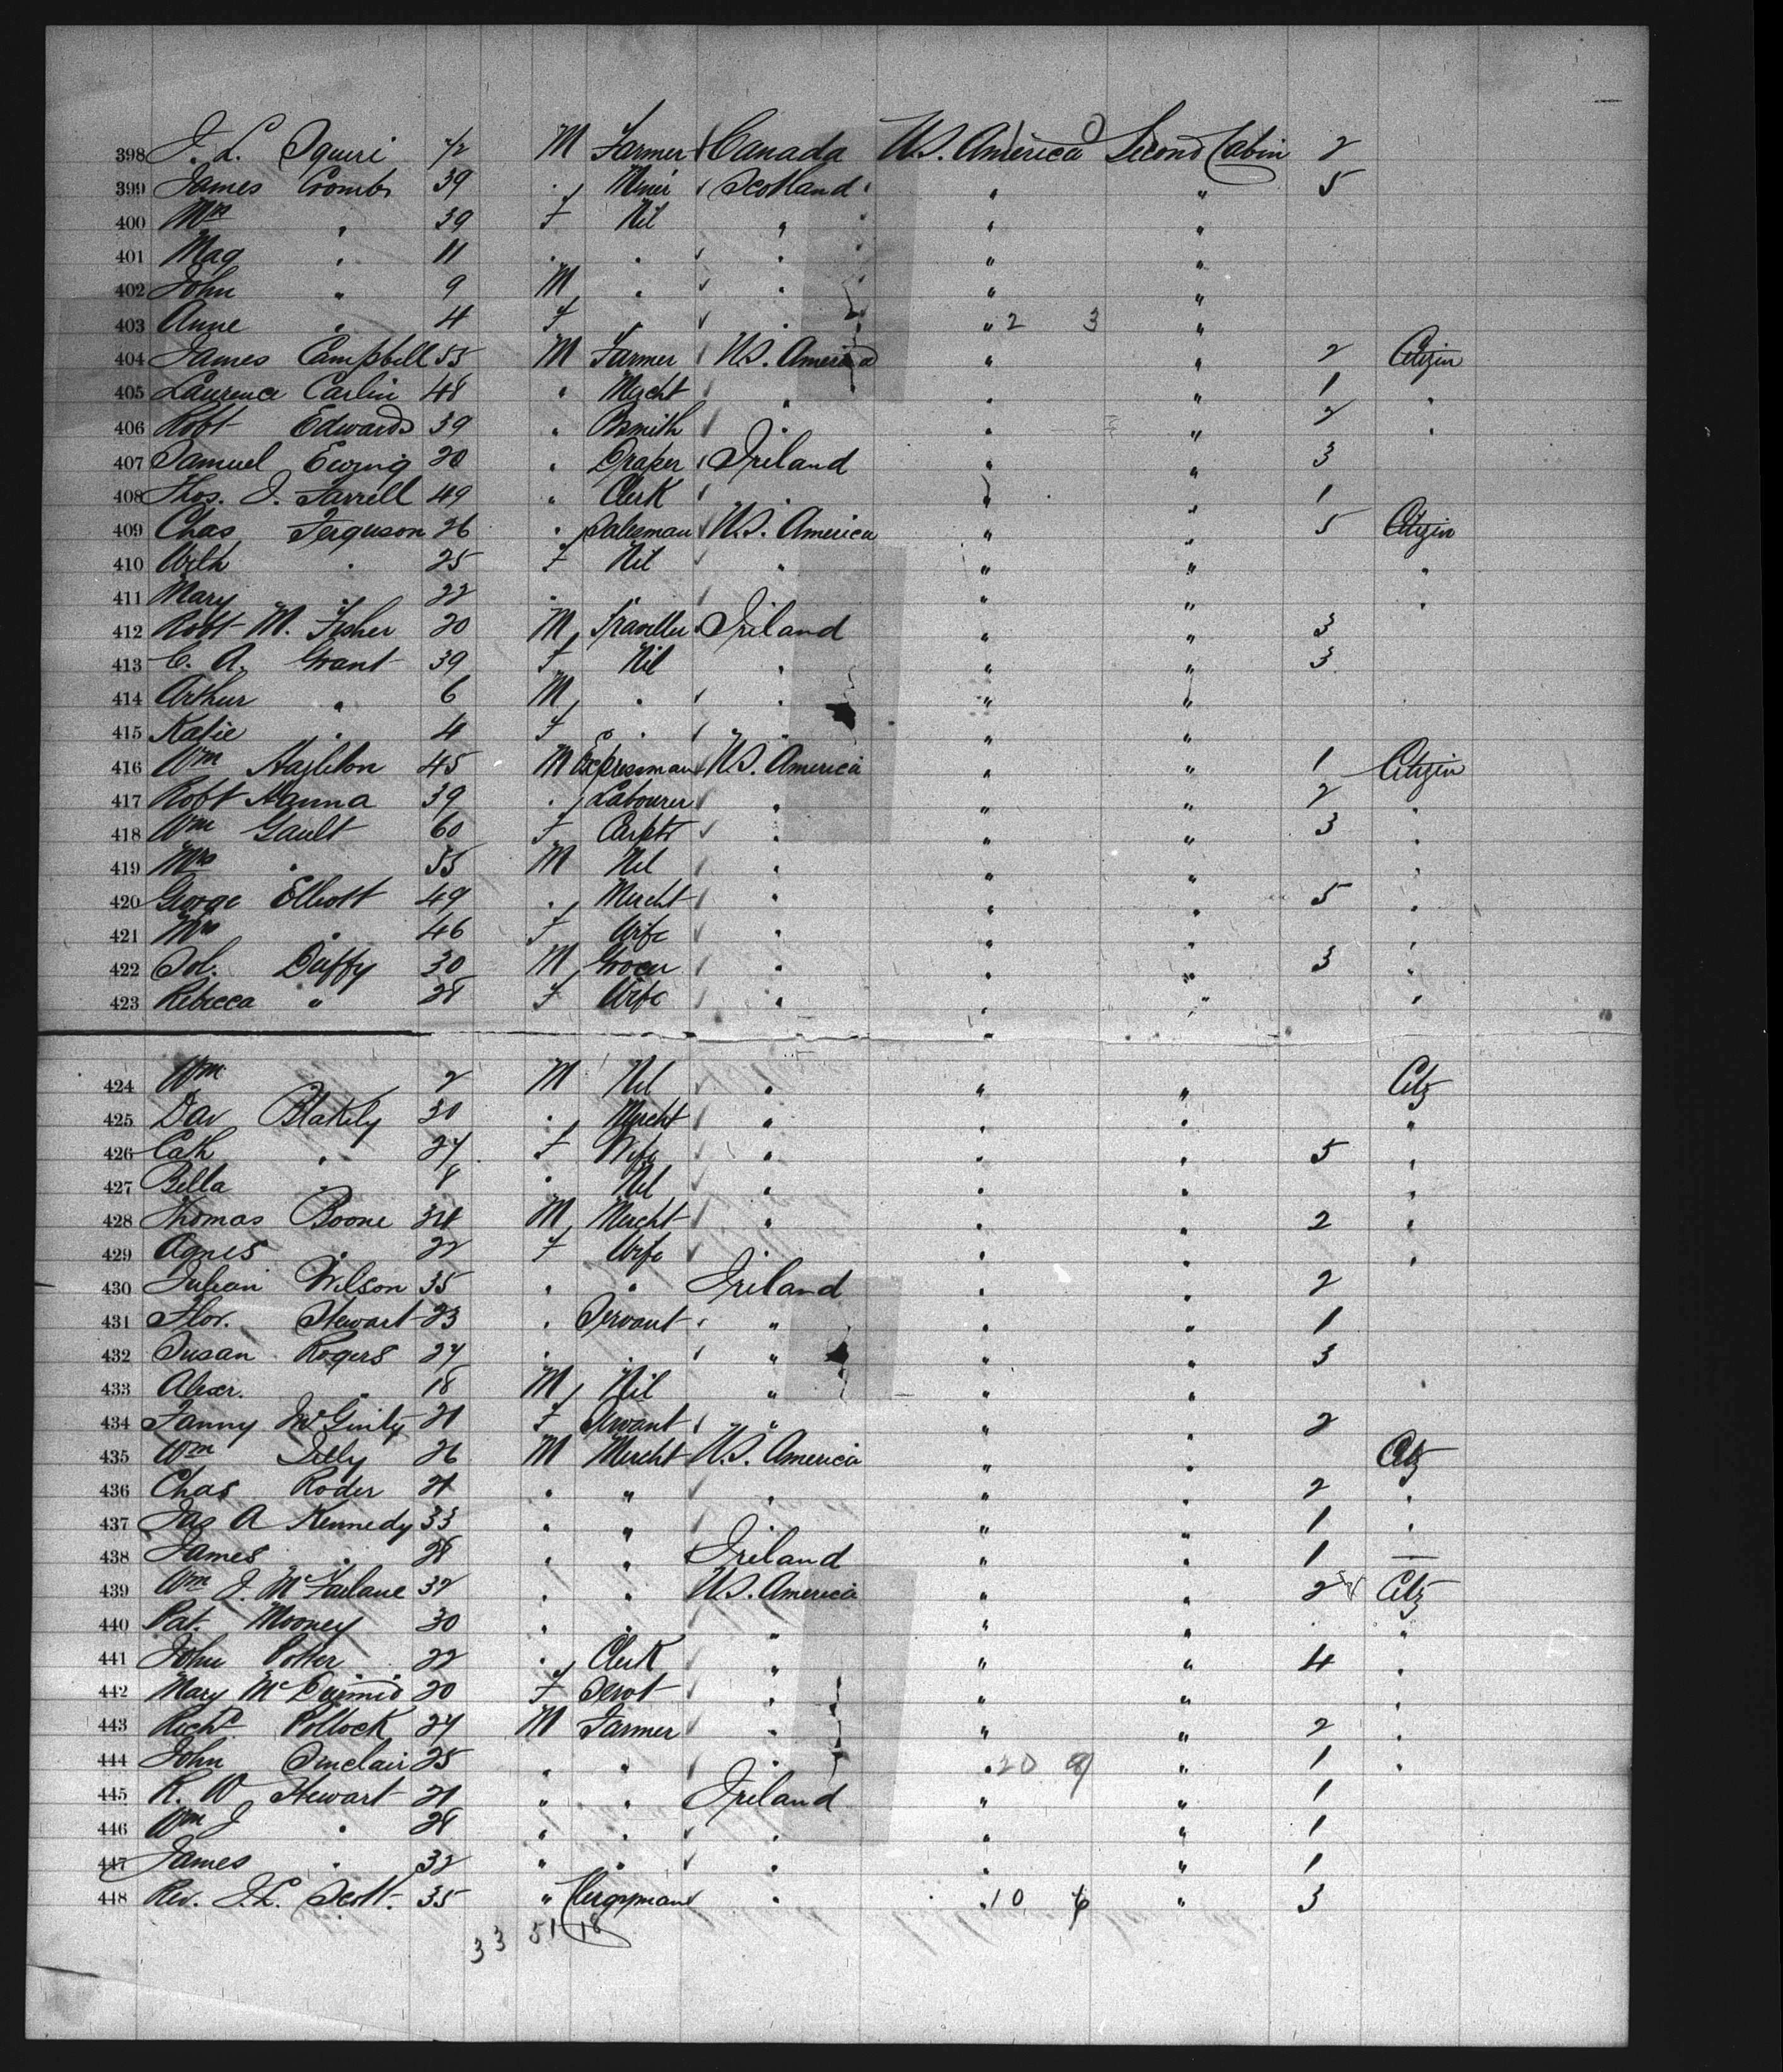 398 J. L. Squiri 42 M Farmer Canada U.S. America Second Cabin 2
399 James Crombs 39 " Miner Scotland " " 5
400 Mrs " 39 F Nil " " "
401 Mag " 11 " " " " "
402 John " 9 M " " " "
403 Anne " 4 F " " " 2 3 "
404 James Campbell 55 M Farmer U.S. America " " 2 Citizen
405 Laurence Carlin 48 " Mercht " " " 1 "
406 Robt Edwards 39 " Bsmith " " " 2 "
407 Samuel Ewing 20 " Draper Ireland " " 3
408 Thos. J. Farrell 49 " Clerk " " " 1
409 Chas Ferguson 26 " Salesman U.S. America " " 5 Citizen
410 " 25 F Nil " " " "
411 Mary 22 " " " " "
412 Robt M. Fisher 20 M Traveller Ireland " " 3
413 C. A. Grant 39 F Nil " " " 3
414 Arthur " 6 M " " " "
415 Katie " 4 F " " " "
416 Wm Hazleton 45 M Expressman U.S. America " " 1 Citizen
417 Robt Hanna 39 " Labourer " " " 2 "
418 Wm Gault 60 F Carptr " " " 3 "
419 Mrs " 55 M Nil " " " "
420 George Elliott 49 " Mercht " " " 5 "
421 Mrs " 46 F Wife " " " "
422 Sol. Duffy 30 M Grocer " " " 3 "
423 Rebecca " 28 F Wife " " " "
424 Wm 2 M Nil " " " Citz
425 Dav Blakely 30 " Mercht " " " "
426 Cath " 27 F Wife " " " 5 "
427 Bella " 8 " Nil " " " "
428 Thomas Boone 34 M Mercht " " " 2 "
429 Agnes " 22 F Wife " " "
430 Wilson 35 " " Ireland " " 2
431 Flor. Stewart 23 " Servant " " " 1
432 Susan Rogers 27 " " " " " 3
433 Alexr. " 18 M Nil " " "
434 Fanny McGinity 21 F Servant " " " 2
435 Wm 26 M Mercht U.S. America " " Citz
436 Chas Roder 21 " " " " " 2 "
437 Jas A Kennedy 33 " " " " 1 "
438 James " 28 " " Ireland " " 1 —
439 Wm J. McFarlane 32 " " U.S. America " " 2 Citz
440 Pat. Mooney 30 " " " " " "
441 John Potter 22 " Clerk " " " 4 "
442 Mary McDiarmid 20 F Servt " " " "
443 Richd Pollock 27 M Farmer " " " 2 "
444 John Sinclair 25 " " " " 20 9 " 1 "
445 R. W Stewart 21 " " Ireland " " 1
446 Wm J " 28 " " " " " 1
447 James " 32 " " " " " 1
448 Rev. J. L. Scott. 35 " Clergyman " " 10 6 " 3
33 51 18